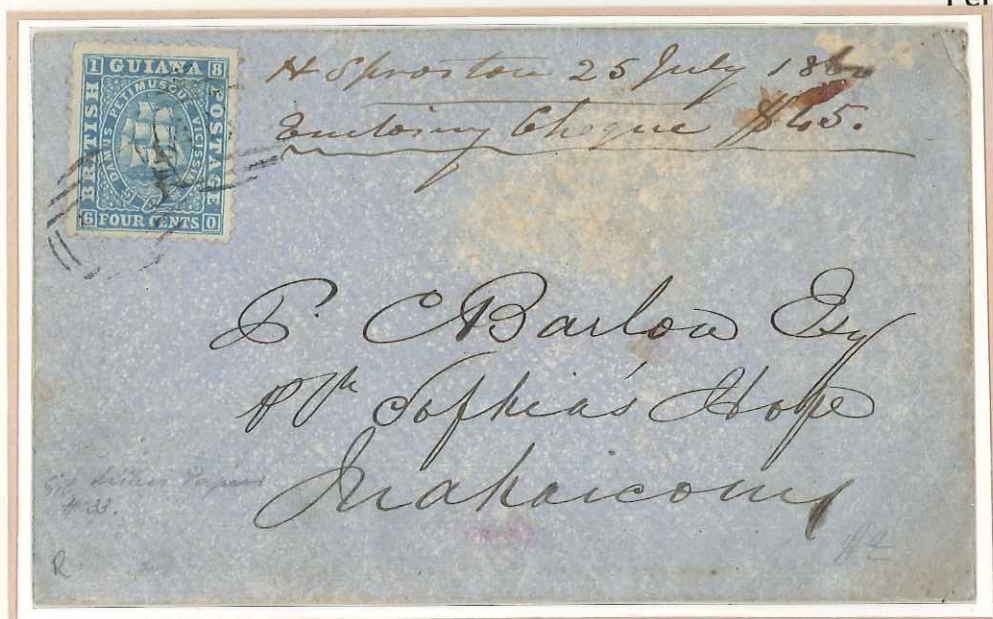 1 GUIANA 8
BRITISH
POSTAGE
DAMUS PETIMUSQUE VICISSIM
6 FOUR CENTS 0
H Sproston 25 July 186
Enclosing Cheque
P. C Barlow Esq
Pln Sophia's Hope
Mahaicony
#33.
R